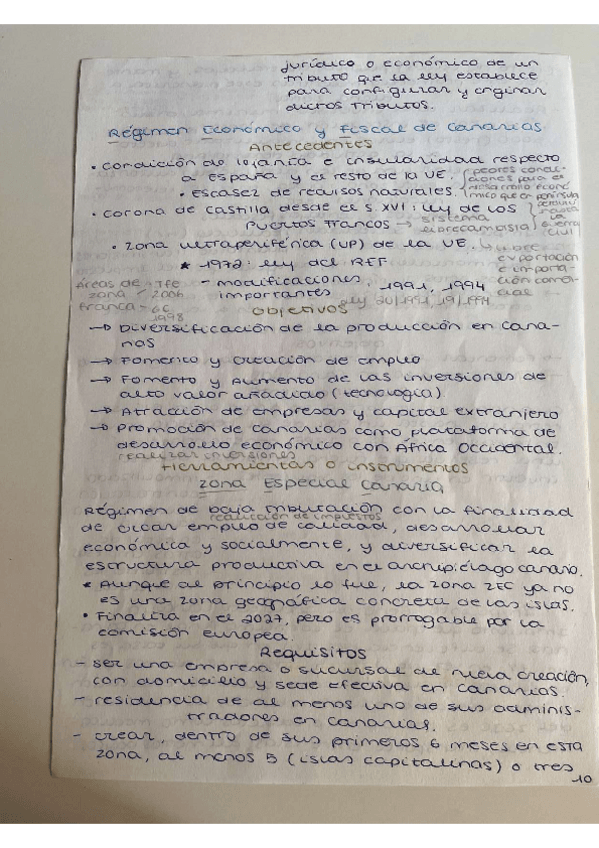 jurídico o económico de un
tributo que la ley establece
para configurar y originar
dichos tributos.
Régimen Económico y Fiscal de Canarias
Antecedentes
• condición de lejanía e insularidad respecto
a España y el resto de la UE.
peores condi-
ciones para el
• escasez de recursos naturales.
desarrollo econó
mico que en península
• corona de castilla desde el s XVI: ley de los
Puertos Francos → sistema
librecambista
guerra
civil
• zona ultraperiférica (UP) de la UE.
exportación
e importa-
ción comer-
cial
* 1972: ley del REF
- modificaciones 1991, 1994
importantes
ley 20/1991, 19/1994
Áreas de - Tfe
zona 2006
franca - GC
1998
Objetivos
→ Diversificación de la producción en Cana-
rias
→ Fomento y creación de empleo
→ Fomento y Aumento de las inversiones de
alto valor añadido (tecnología)
→ Atracción de empresas y capital extranjero
→ Promoción de canarias como plataforma de
desarrollo económico con África Occidental.
realizar inversiones
Herramientas o instrumentos
Zona Especial Canaria
Régimen de baja tributación con la finalidad
reducción de impuestos
de crear empleo de calidad, desarrollar
económica y socialmente, y diversificar la
estructura productiva en el archipiélago canario.
* Aunque al principio lo fue, la zona ZEC ya no
es una zona geográfica concreta de las islas.
• Finaliza en el 2027, pero es prorrogable por la
comisión europea.
Requisitos
- ser una empresa o sucursal de nueva creación,
con domicilio y sede efectiva en canarias.
- residencia de al menos uno de sus adminis-
tradores en canarias.
- crear, dentro de sus primeros 6 meses en esta
zona, al menos 5 (islas capitalinas) o tres
10